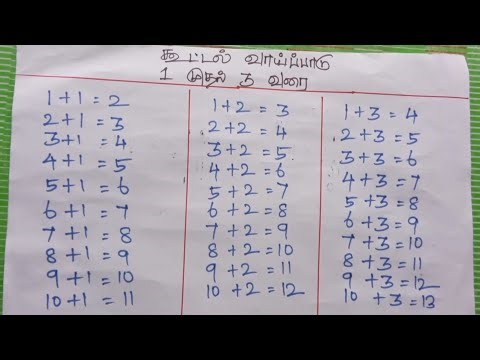 கூட்டல் வாய்ப்பாடு
1 முதல் 3 வரை
1+1=2
2+1=3
3+1=4
4+1=5
5+1=6
6+1=7
7+1=8
8+1=9
9+1=10
10+1=11
1+2=3
2+2=4
3+2=5
4+2=6
5+2=7
6+2=8
7+2=9
8+2=10
9+2=11
10+2=12
1+3=4
2+3=5
3+3=6
4+3=7
5+3=8
6+3=9
7+3=10
8+3=11
9+3=12
10+3=13